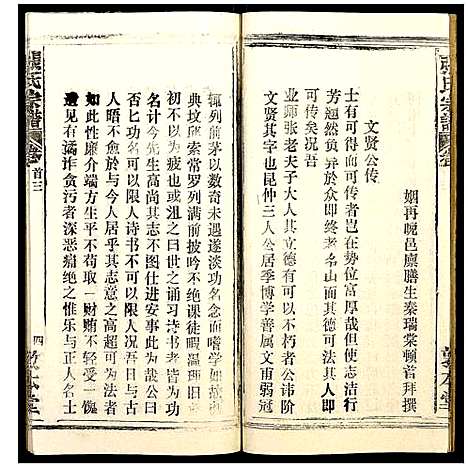 張氏宗譜
文贤公传
姻再晚邑廪膳生秦瑞棠顿首拜撰
士有可得而可传者岂在势位富厚哉但使志洁行
芳趨然而异於众即终老名山而其德可法人即
可传矣况吾
业师张老夫子大人其立德有以不朽者公讳阶
文贤其字也昆仲三人公居季博学善属文弱冠
辄列前茅以数奇未遇遂淡功名念而嗜学如故
典坟邱索常罗列满前披吟不绝课徒暇温理旧
初不以为疲也或沮之曰世之诵习诗书者皆为功
名计今先生高尚其志不图仕进安事此为哉公曰
功名不可以限人诗书不可以限人况吾日与古
人晤不愈於与今人居乎其志意之高超可为法者
如此性廉介端方生平不苟取一财贿不轻受一餽
遗见有谲诈贪污者深恶痛绝之惟乐与正人名士
張氏宗譜
首三
四
敦本堂